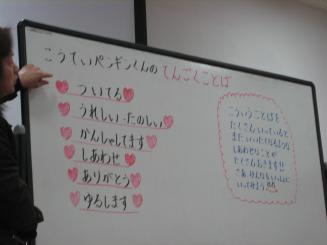 こうていペンギンくんの てんごくことば
ついてる
うれしい・たのしい
かんしゃしてます
しあわせ
ありがとう
ゆるします
こういうことばを
たくさんいっていると
また いいたくなるような
しあわせなことが
たくさんおきます!!
さぁ みんなもいっしょに
いってみよう